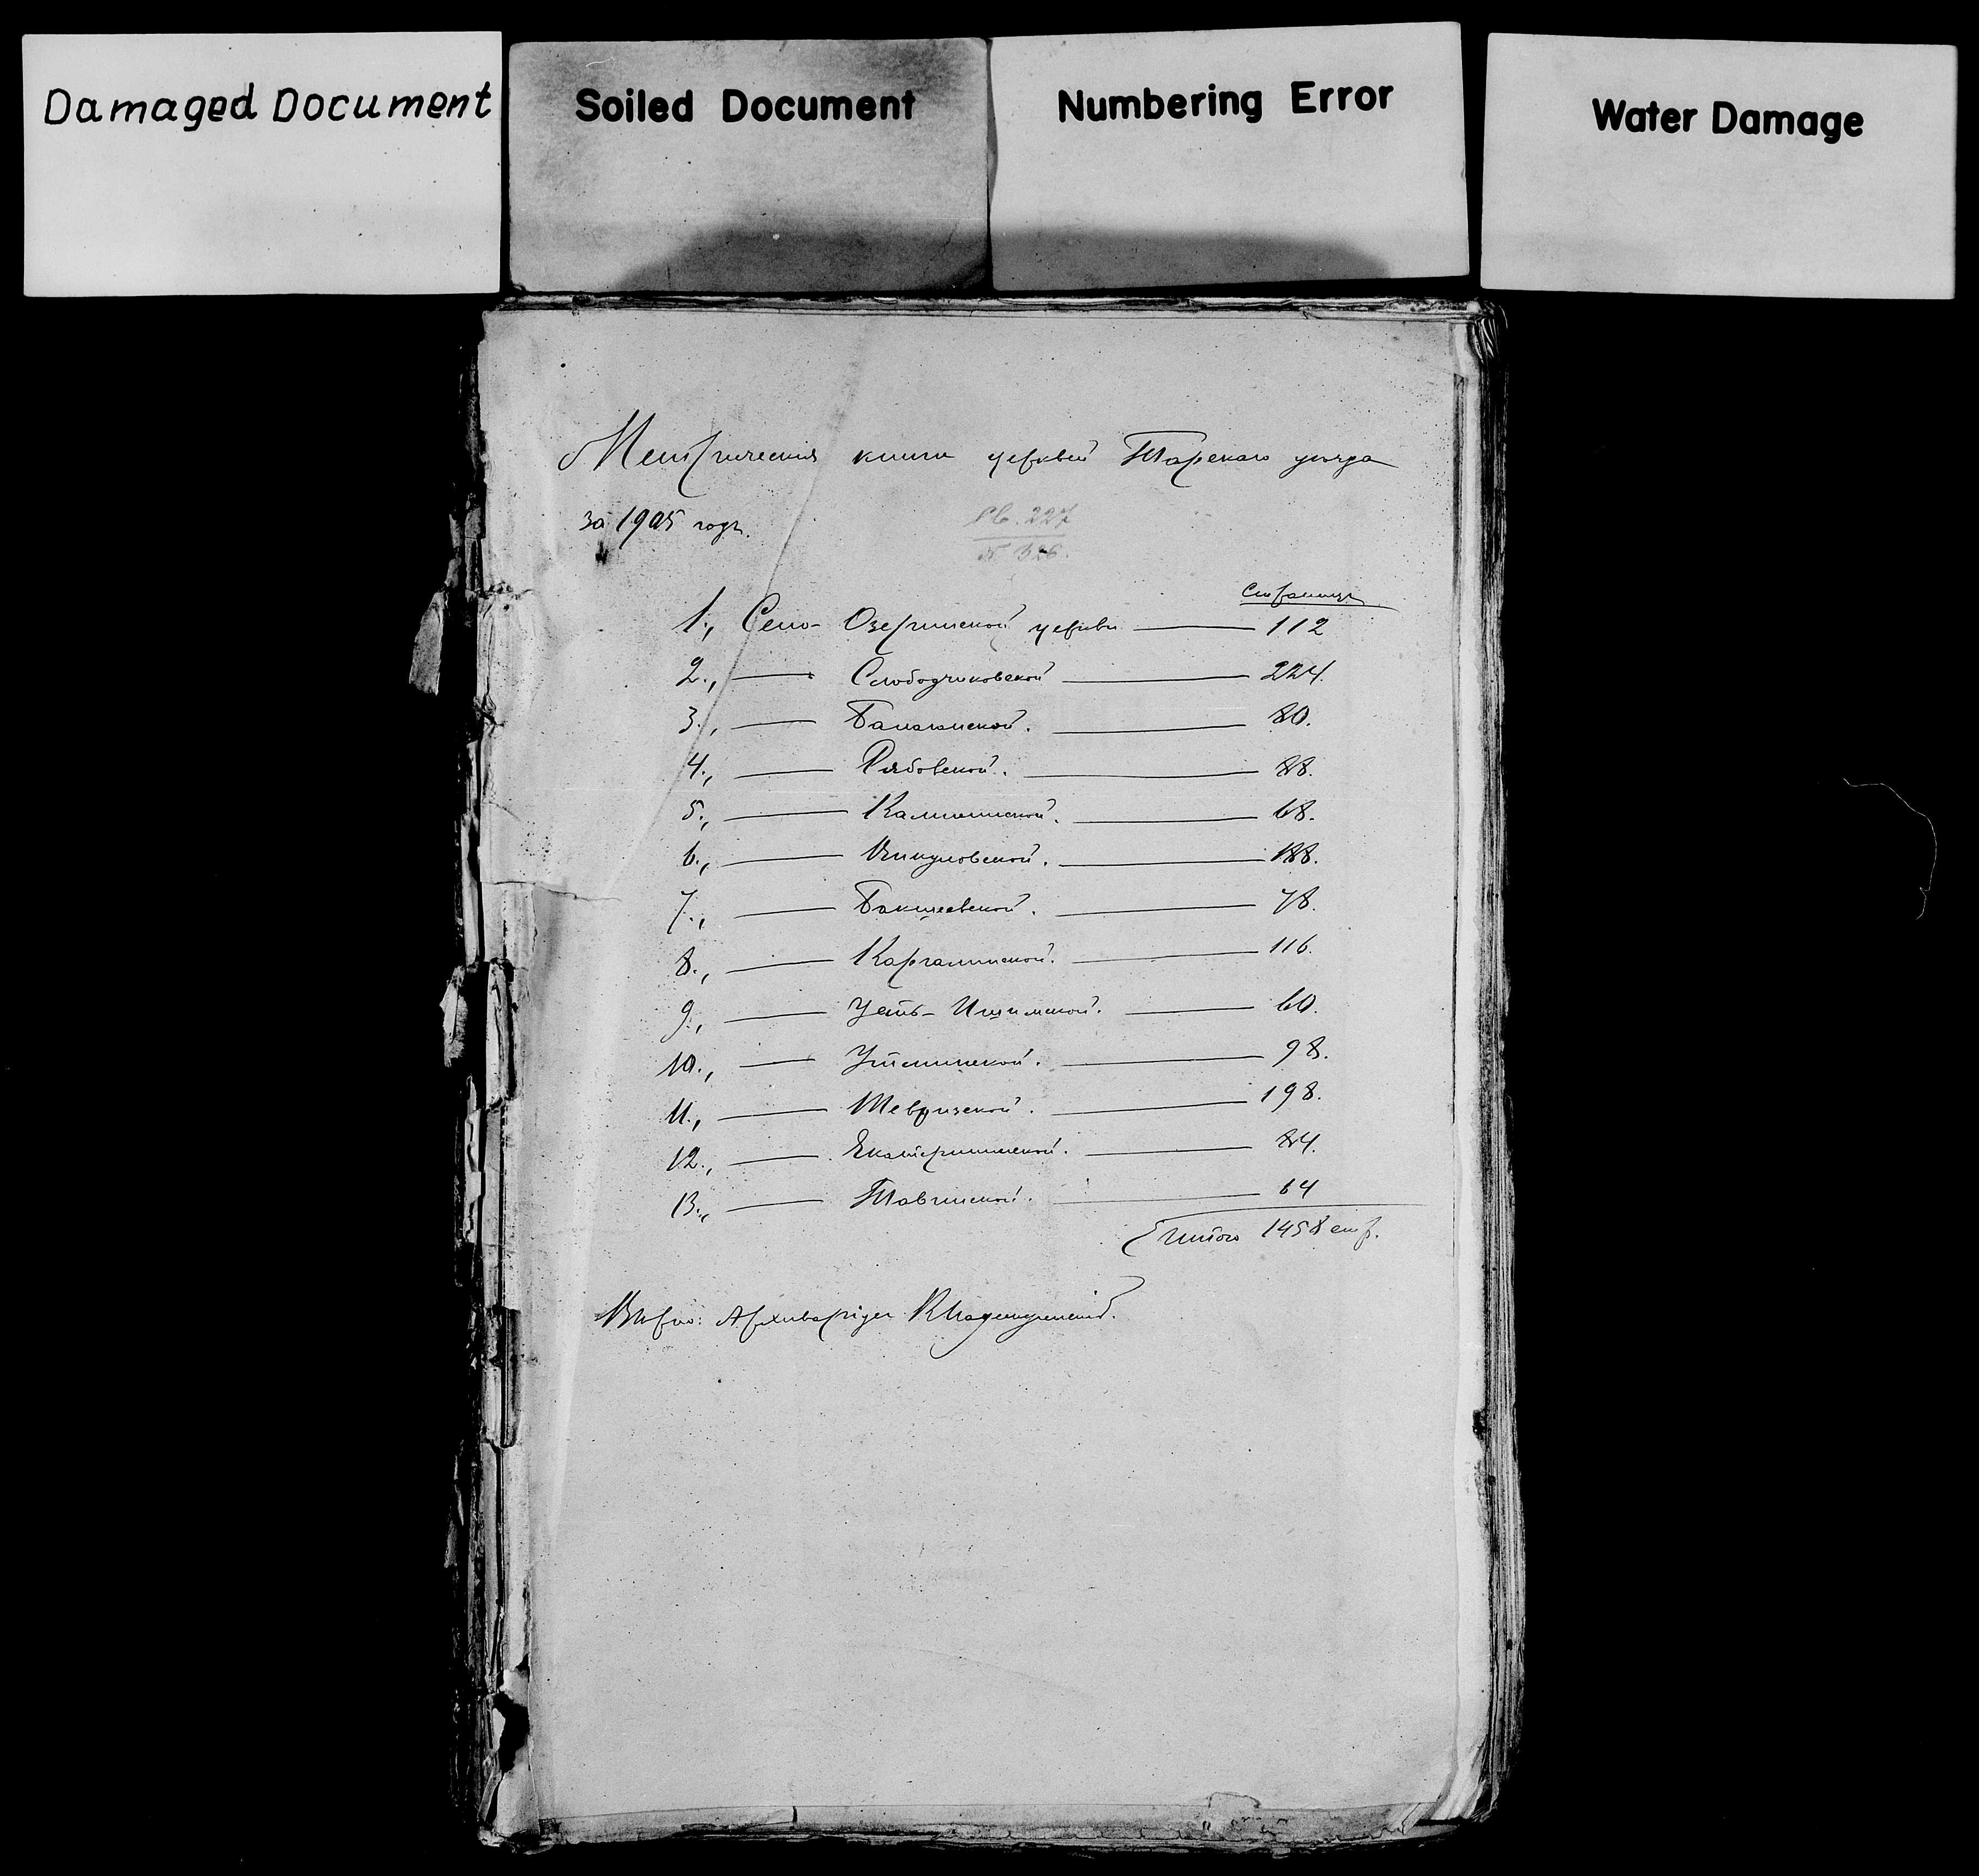 Damaged Document
Soiled Document
Numbering Error
Water Damage
Метрическія книги церквей Тарскаго уѣзда
за 1905 годъ.
Св. 227
№ 326.
Страницъ
1., Село-Озеринской церкви — 112
2., — Слободчиковской — 224.
3., — — 80.
4., — Рябовской. — 88.
5., — — 68.
6., — Викуловской. — 188.
7., — Бакшеевской. — 78.
8., — Каргалинской. — 116.
9., — Усть-Ишимской. — 60.
10., — Утьминской. — 98.
11., — Тевризской. — 198.
12., — Екатерининской. — 84.
13., — Тавинской. — 64
Итого 1458 стр.
Вѣрно: Архиваріусъ